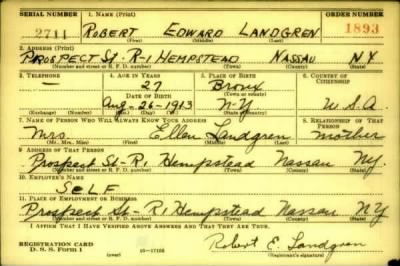 SERIAL NUMBER 1. NAME (Print) ORDER NUMBER
2711 ROBERT EDWARD LANDGREN 1893
(First) (Middle) (Last)
2. ADDRESS (Print)
PROSPECT St - R-1 HEMPSTEAD NASSAU N.Y.
(Number and street or R. F. D. number) (Town) (County) (State)
3. TELEPHONE 4. AGE IN YEARS 5. PLACE OF BIRTH 6. COUNTRY OF CITIZENSHIP
— 27 Bronx
DATE OF BIRTH (Town or county)
Aug-26-1913 N-Y U.S.A
(Exchange) (Number) (Mo.) (Day) (Yr.) (State or country)
7. NAME OF PERSON WHO WILL ALWAYS KNOW YOUR ADDRESS 8. RELATIONSHIP OF THAT PERSON
Mrs. Ellen Landgren Mother
(Mr., Mrs., Miss) (First) (Middle) (Last)
9. ADDRESS OF THAT PERSON
Prospect St-R1 Hempstead Nassau NY.
(Number and street or R. F. D. number) (Town) (County) (State)
10. EMPLOYER'S NAME
SELF
11. PLACE OF EMPLOYMENT OR BUSINESS
Prospect St-R1 Hempstead Nassau NY
(Number and street or R. F. D. number) (Town) (County) (State)
I AFFIRM THAT I HAVE VERIFIED ABOVE ANSWERS AND THAT THEY ARE TRUE.
REGISTRATION CARD
D. S. S. FORM 1 (over) 16-17105 Robert E. Landgren
(Registrant's signature)